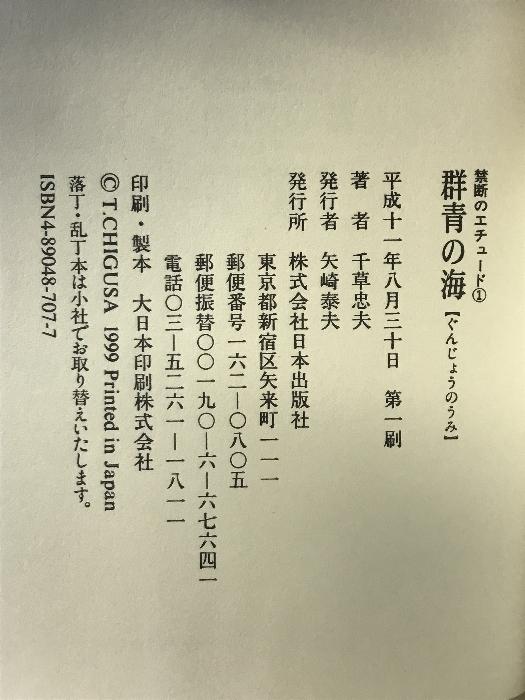 禁断のエチュード①
群青の海【ぐんじょうのうみ】
平成十一年八月三十日　第一刷
著　者　千草忠夫
発行者　矢崎泰夫
発行所　株式会社日本出版社
東京都新宿区矢来町一一一
郵便番号一六二―〇八〇五
郵便振替〇〇一九〇―六―六七六四一
電話〇三―五二六一―一八一一
印刷・製本　大日本印刷株式会社
© T.CHIGUSA 1999 Printed in Japan
落丁・乱丁本は小社でお取り替えいたします。
ISBN4-89048-707-7